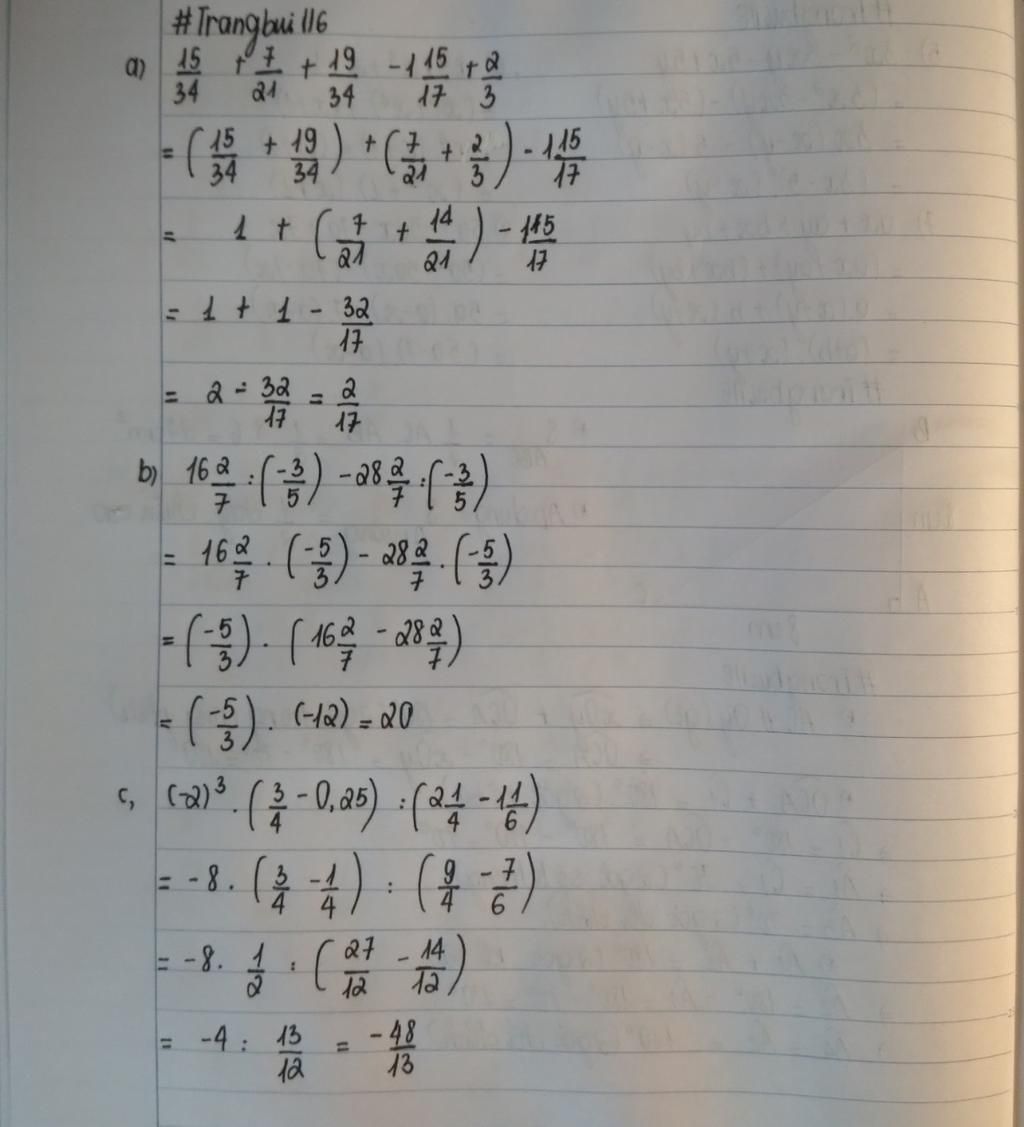 #Trangbui116
a) 15/34 + 7/21 + 19/34 - 1 15/17 + 2/3
= (15/34 + 19/34) + (7/21 + 2/3) - 1 15/17
= 1 + (7/21 + 14/21) - 1 15/17
= 1 + 1 - 32/17
= 2 - 32/17 = 2/17
b) 16 2/7 : (-3/5) - 28 2/7 : (-3/5)
= 16 2/7 . (-5/3) - 28 2/7 . (-5/3)
= (-5/3) . (16 2/7 - 28 2/7)
= (-5/3) . (-12) = 20
c, (-2)³ . (3/4 - 0,25) : (2 1/4 - 1 1/6)
= -8 . (3/4 - 1/4) : (9/4 - 7/6)
= -8 . 1/2 : (27/12 - 14/12)
= -4 : 13/12 = -48/13